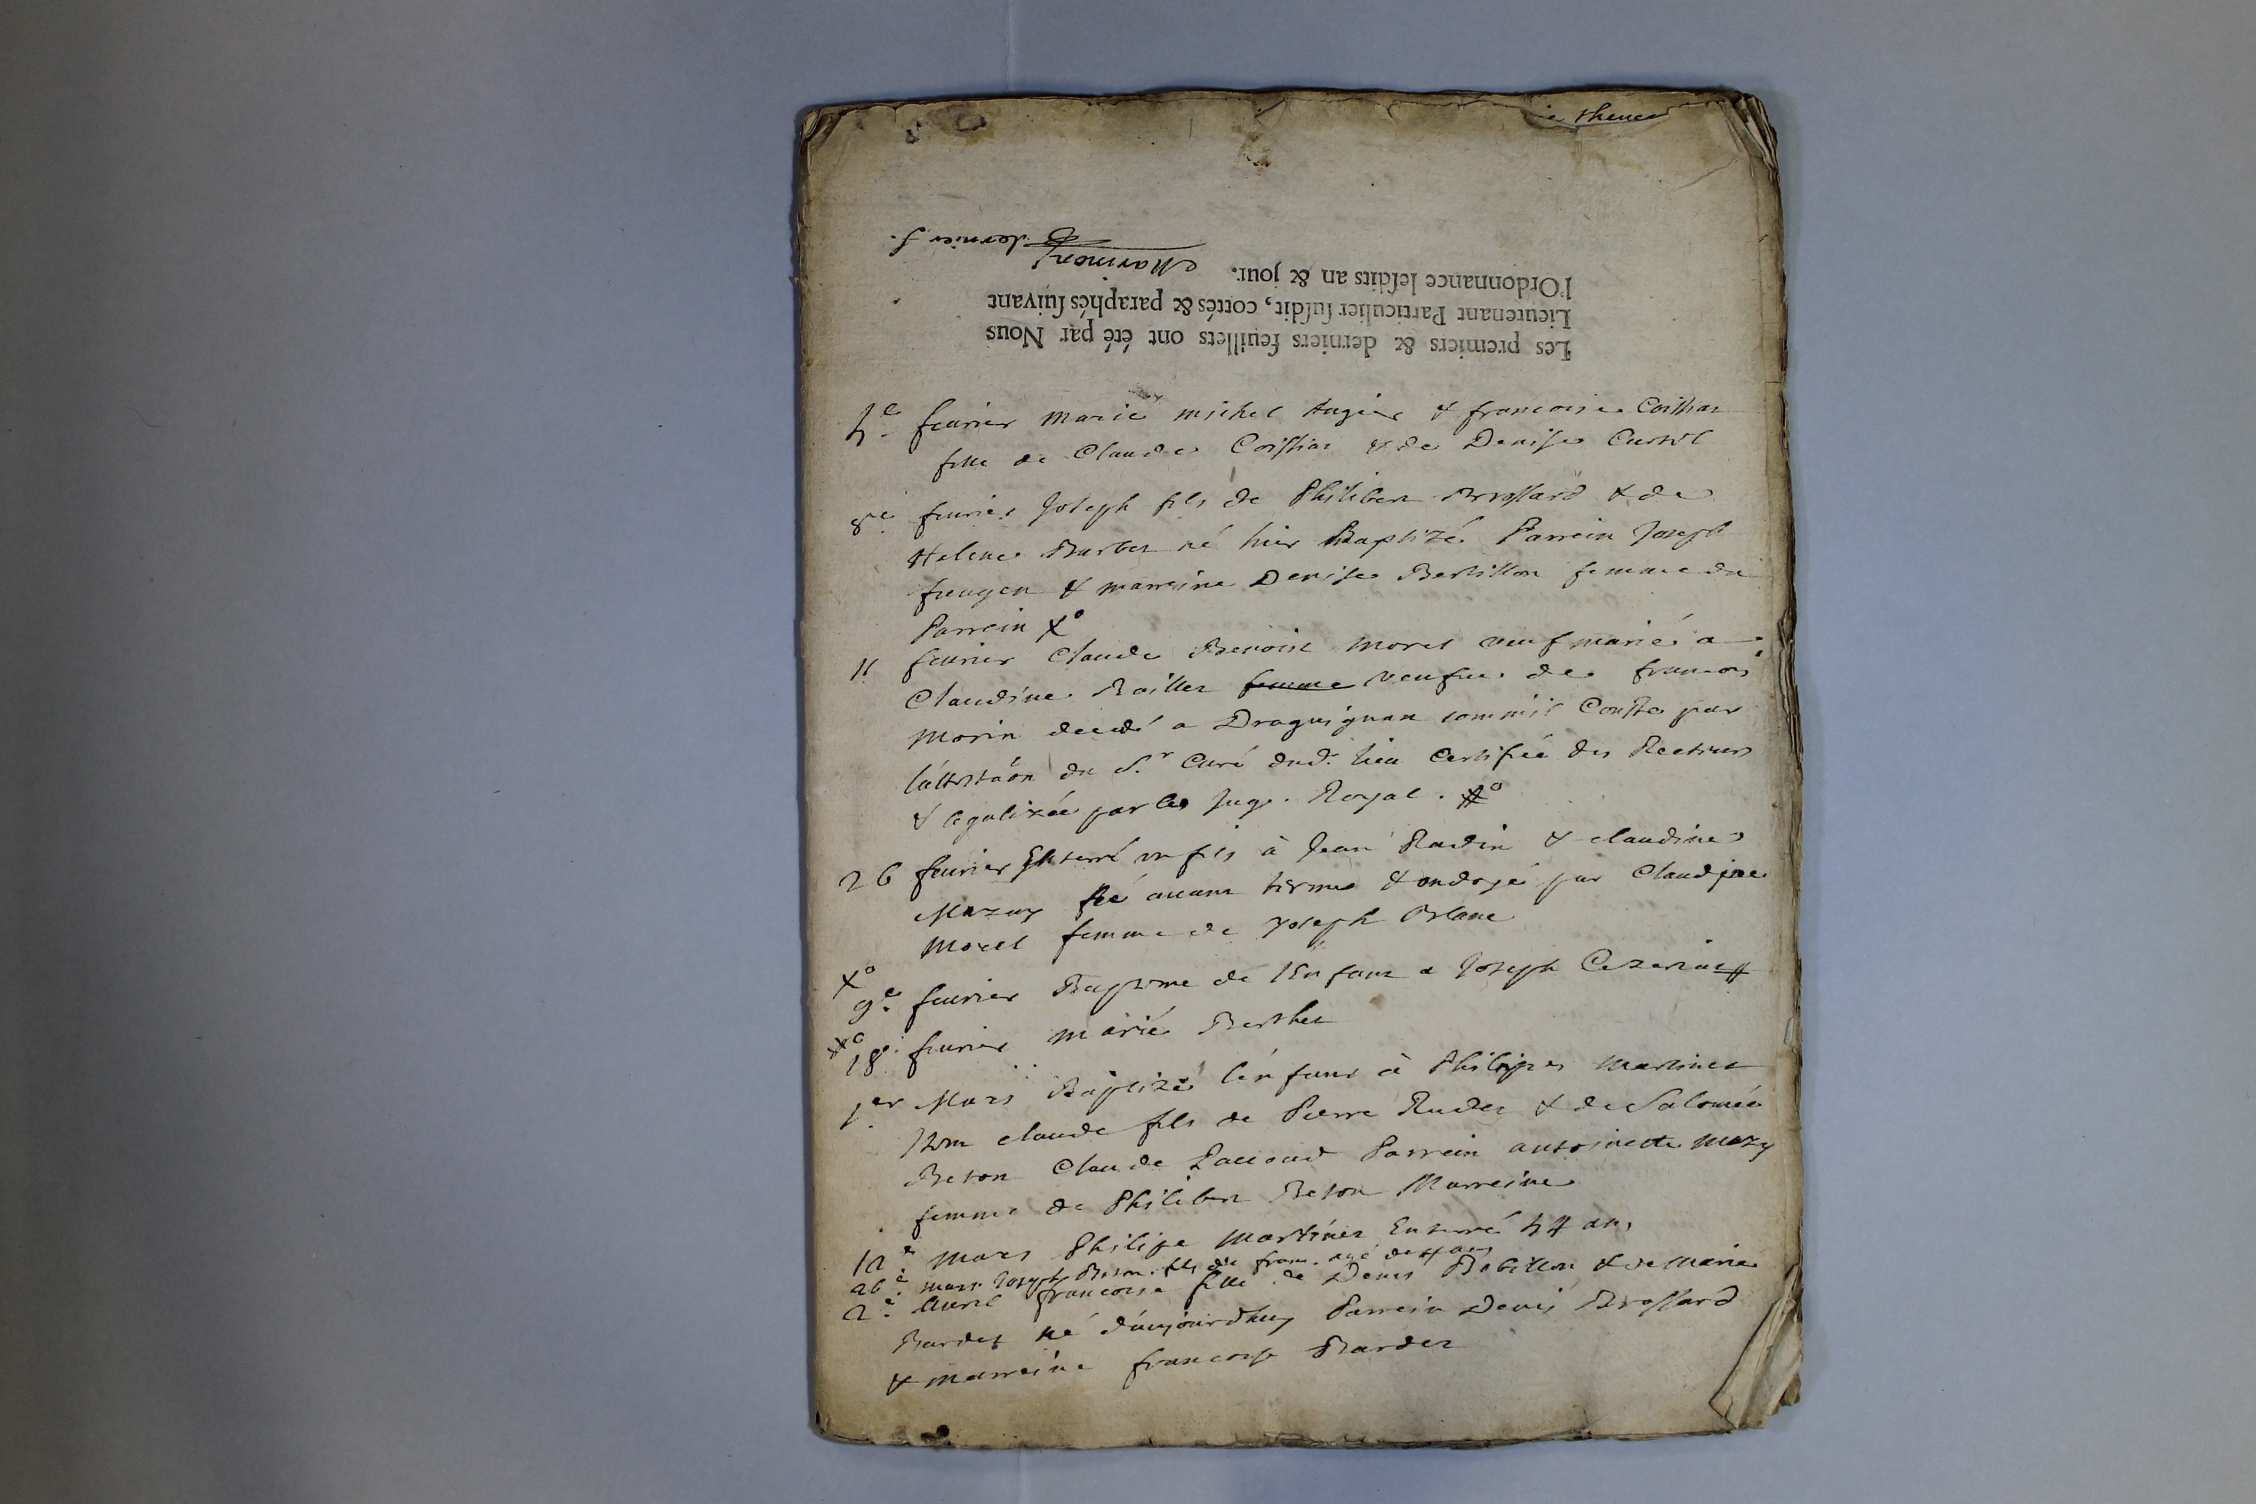 Les premiers & derniers feuillets ont été par Nous
Lieutenant Particulier ſuſdit, cottés & paraphés ſuivant
l'Ordonnance leſdits an & jour. Marmont
dernier f.
4e feurier marié michel & francoise Coissiat
fille de Claude Coissiat & de Denise Curtil
8e feurier Joseph fils de Philibert Brossard & de
Helene Barbet né hier Baptizé Parrein Joseph
& marreine Denise Bertillon femme du
Parrein X°
11 feurier Claude Benoist morel veuf marié a
Claudine femme veufue de francois
morin decedé a Draguignan comme il Conste par
l'attestaôn du S.r Curé dud. lieu Certifiée des Recteurs
& legalizée par le Juge Royal. #°
26 feurier Enterré un fils à Jean & claudine
Mazuy né auant terme & ondoyé par Claudine
Morel femme de Joseph
X° 9e feurier Baptême de l'Enfant a Joseph #
XX° 18e feurier marié Berthet
1er Mars Baptizé l'enfant à Philipes Martinet
Item claude fils de Pierre & de Salomée
Beton Claude Parrein antoinette Mazuy
femme de Philibert Beton Marreine
12e mars Philipe Martinet Enterré 44 ans
26e mars Joseph Beton fils de franc. agé de 4 ans
2e Auril francoise fille de Denis & de Marie
Bardet né d'aujourdhuy Parrein Denis Brossard
& marreine francoise Bardet